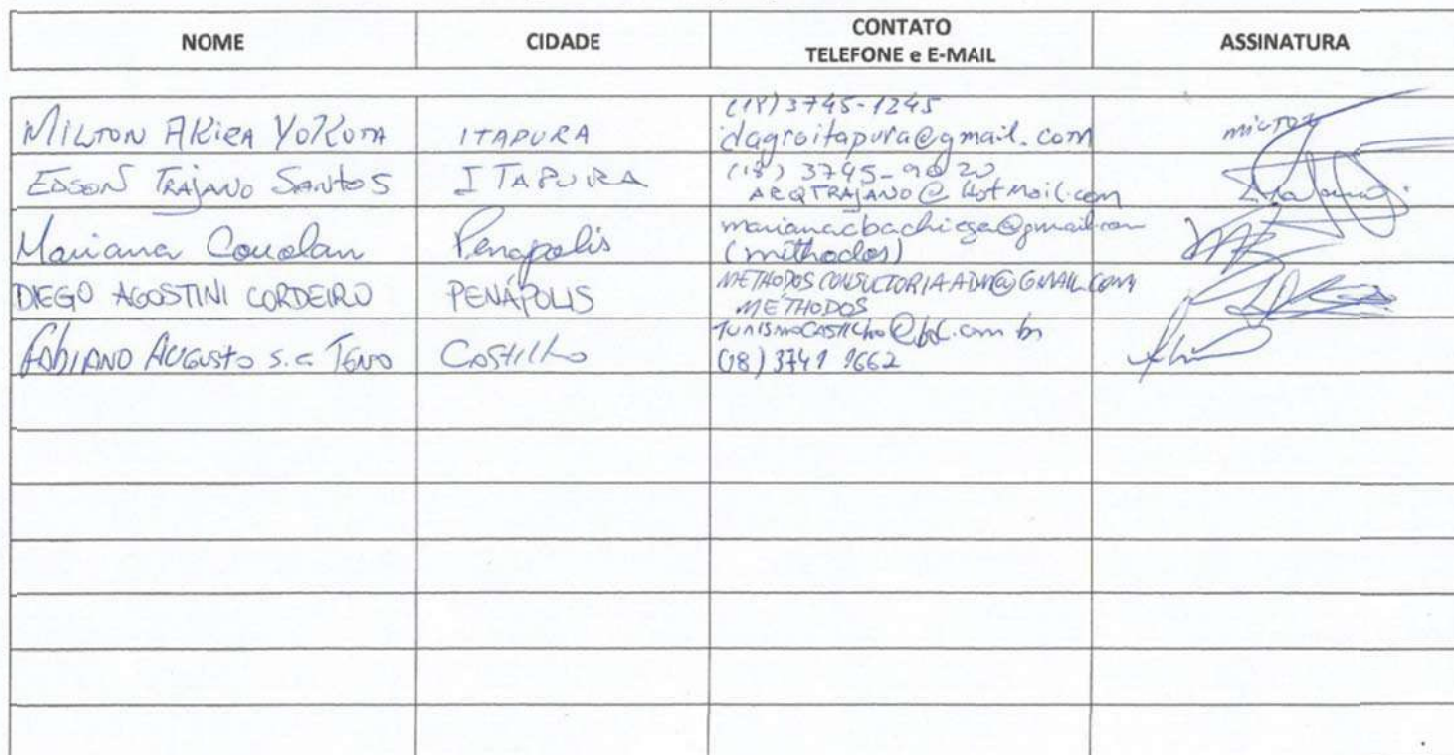 NOME CIDADE CONTATO TELEFONE e E-MAIL ASSINATURA
MILTON AKIRA YOKOTA ITAPURA (18) 3745-1245
dagroitapura@gmail.com milton
EDSON TRAJANO SANTOS ITAPURA (18) 3745-9020
ARQTRAJANO@HotMail.com
Mariana Penapolis marianacbachiega@gmail.com
(methodos)
DIEGO AGOSTINI CORDEIRO PENÁPOLIS METHODOSCONSULTORIAADM@GMAIL.COM
METHODOS
FABIANO AUGUSTO S. Castilho TURISMOCASTILHO@bol.com.br
(18) 3741 9662